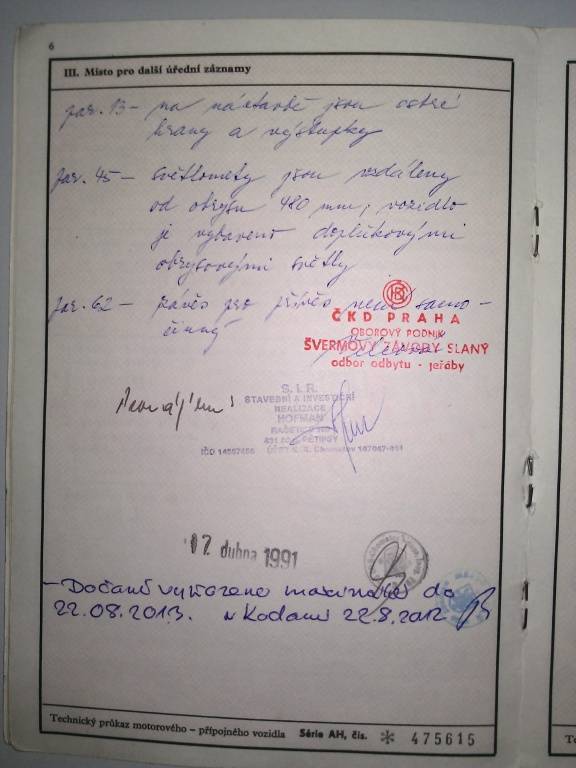 6
III. Místo pro další úřední záznamy
par. 13 – na nástavbě jsou ostré
hrany a výstupky
par. 45 – světlomety jsou vzdáleny
od obrysu 480 mm, vozidlo
je vybaveno doplňkovými
obrysovými světly
par. 62 – závěs pro přívěs není samo-
činný
ČKD PRAHA
OBOROVÝ PODNIK
ŠVERMOVY ZÁVODY SLANÝ
odbor odbytu - jeřáby
Pronájem:
S. I. R.
STAVEBNÍ A INVESTIČNÍ
REALIZACE
HOFMAN
IČO
17. dubna 1991
– Dočasně vyřazeno maximálně do
22.08.2013. v Kadani 22.8.2012
Technický průkaz motorového – přípojného vozidla Série AH, čís. * 475615